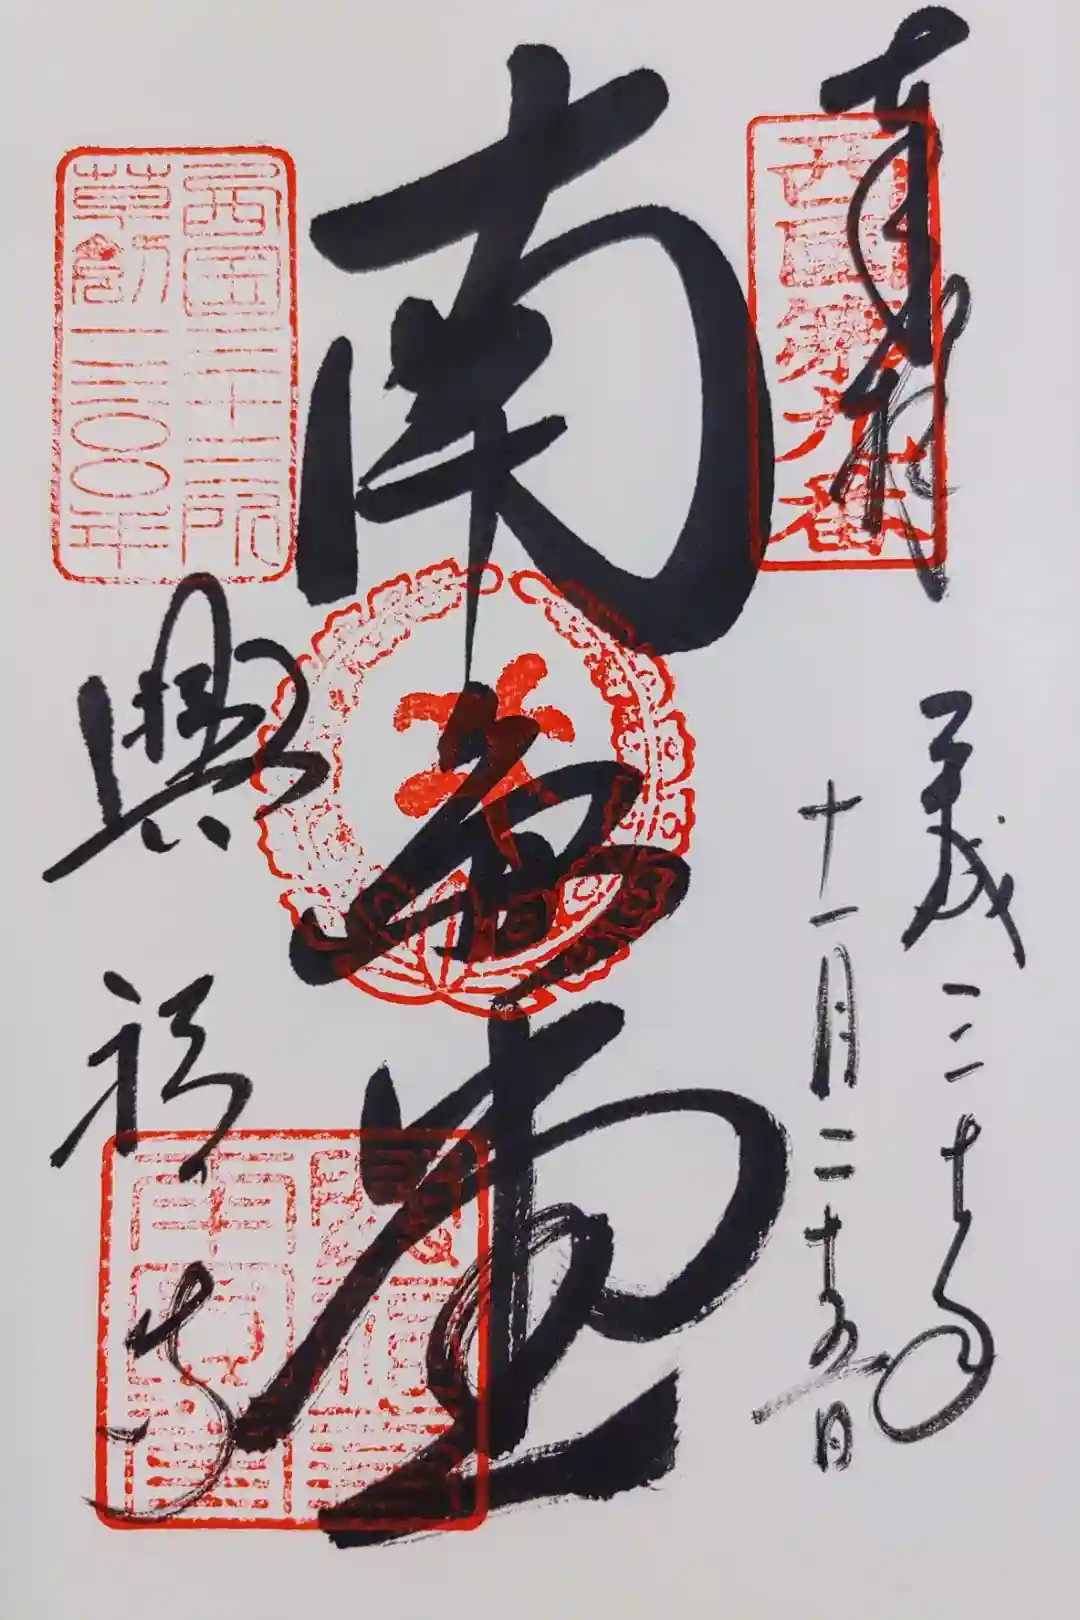 奉拝
西国第九番
平成三十年
十一月二十五日
南円堂
西国三十三所
草創一三〇〇年
興福寺
興福寺
南圓堂